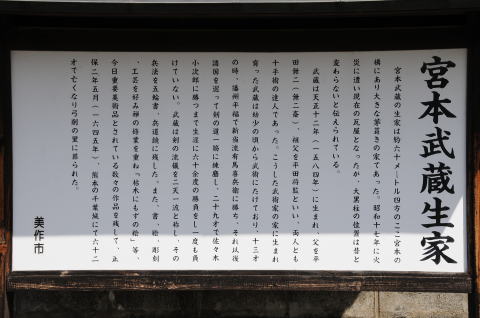 宮本武蔵生家
宮本武蔵の生家は約六十メートル四方のここ宮本の
構にあり大きな茅葺きの家であった。昭和十七年に火
災に遭い現在の瓦屋となったが、大黒柱の位置は昔と
変わらないと伝えられている。
武蔵は天正十二年(一五八四年)に生まれ、父を平
田無二(無二斎)、祖父を平田将監といい、両人とも
十手術の達人であった。こうした武術家の家に生まれ
育った武蔵は幼少の頃から武術にたけており、十三才
の時、播州平福で新当流有馬喜兵衛に勝ち、それ以後
諸国を巡って剣の道一筋に錬磨し、二十九才で佐々木
小次郎に勝つまで生涯に六十余度の勝負をし一度も負
けていない。武蔵は剣の流儀を二天一流と称し、その
兵法を五輪書、兵道鏡に残した。また、書、絵、彫刻
、工芸を好み禅の修業を重ね「枯木にもずの絵」等、
今日重要美術品とされている数々の作品を残して、正
保二年五月(一六四五年)、熊本の千葉城にて六十二
才で亡くなり弓削の里に葬られた。
美作市